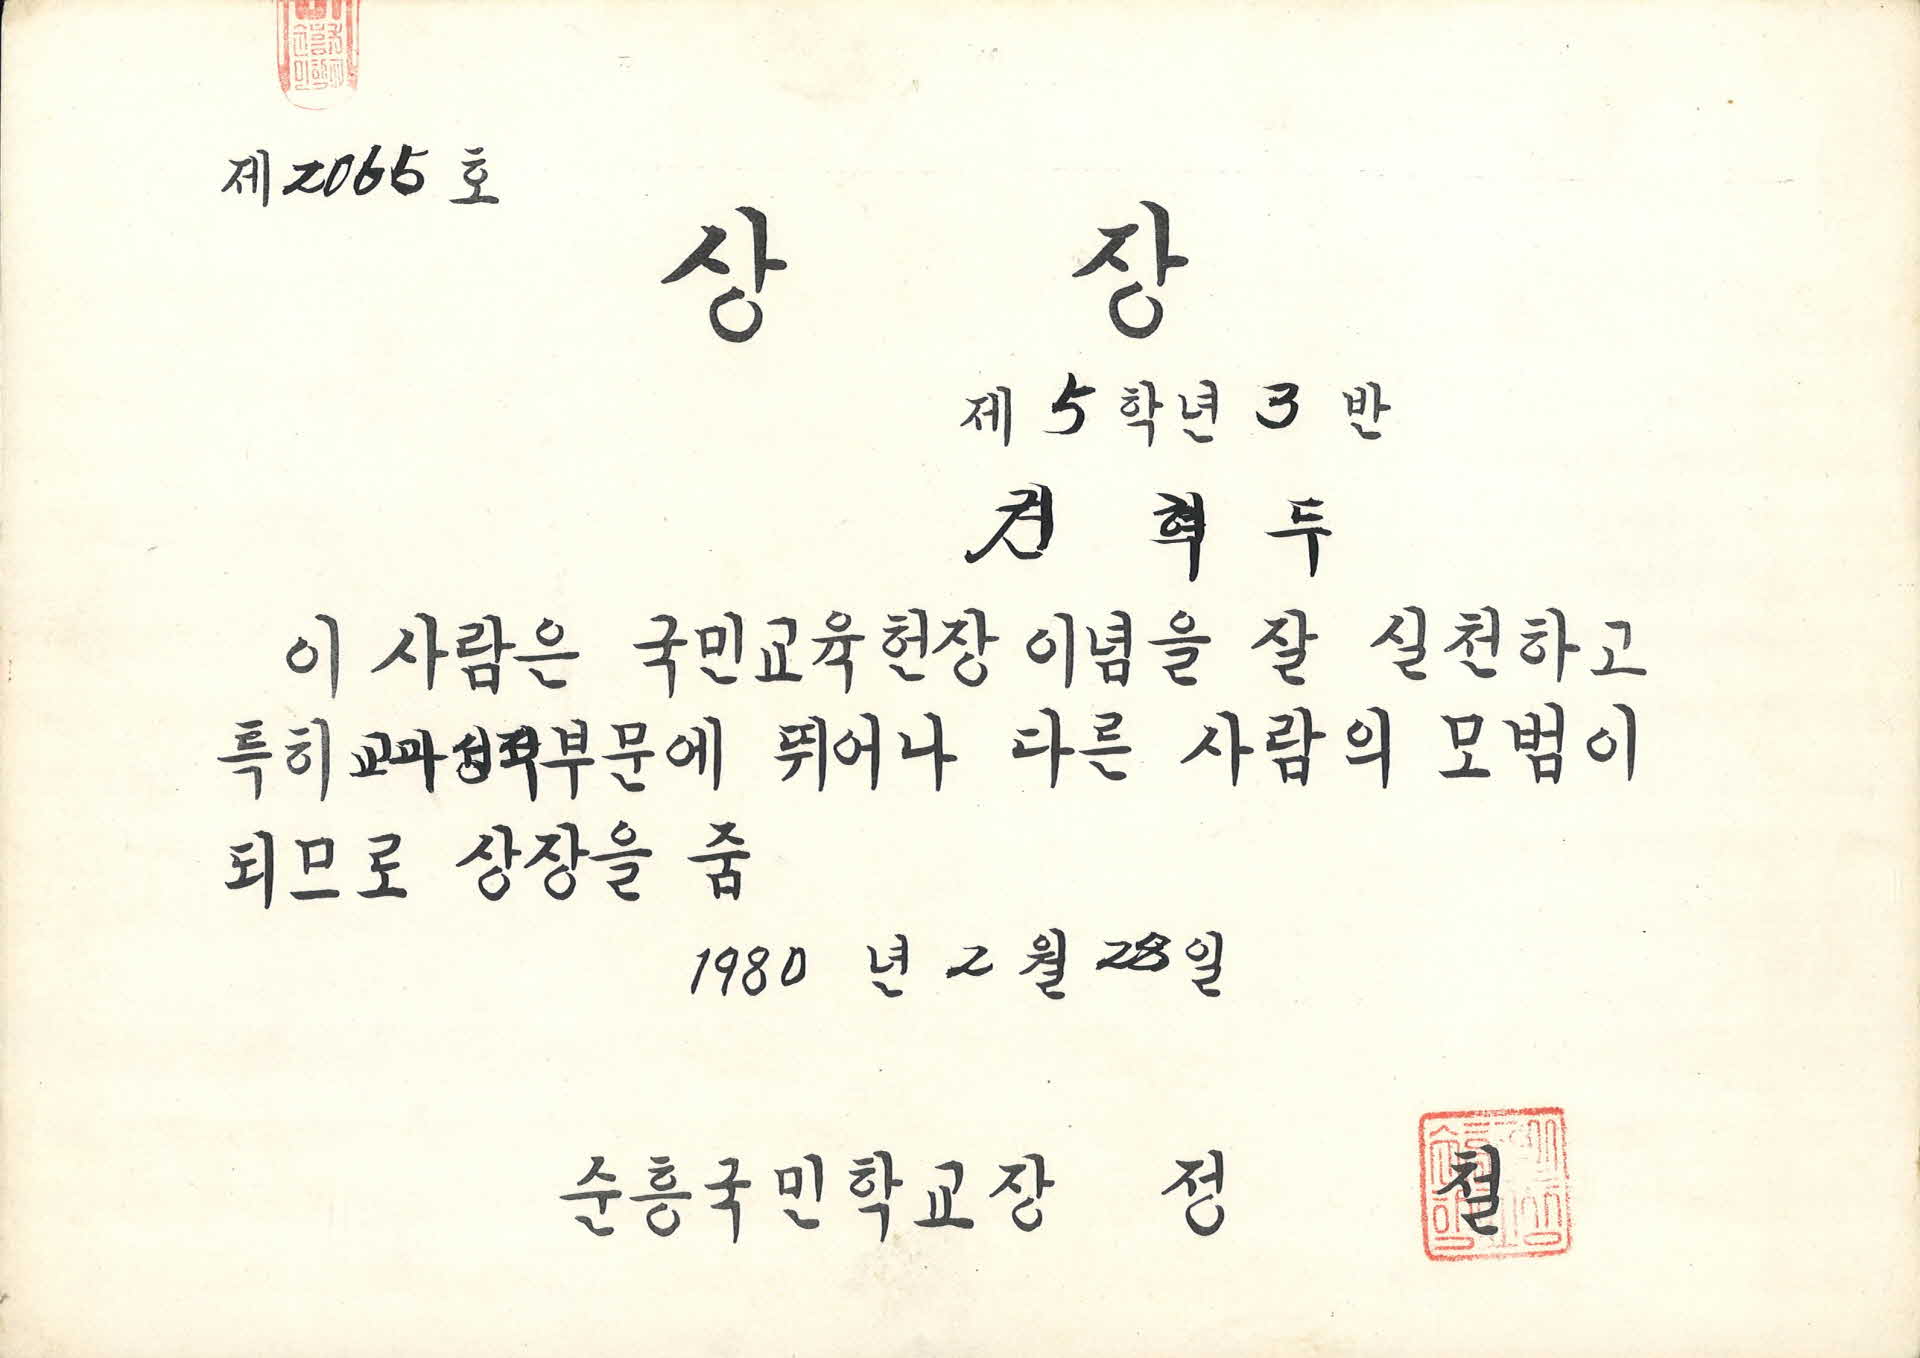 제 2065 호
상 장
제 5 학년 3 반
권 혁 두
이 사람은 국민교육헌장 이념을 잘 실천하고
특히 교과성적부문에 뛰어나 다른 사람의 모범이
되므로 상장을 줌
1980 년 2 월 28 일
순흥국민학교장 정 철